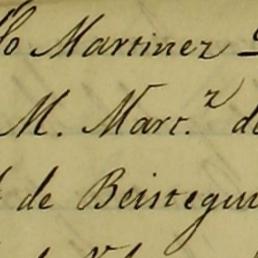 Martinez
M. Mart.z de
de Beistegui